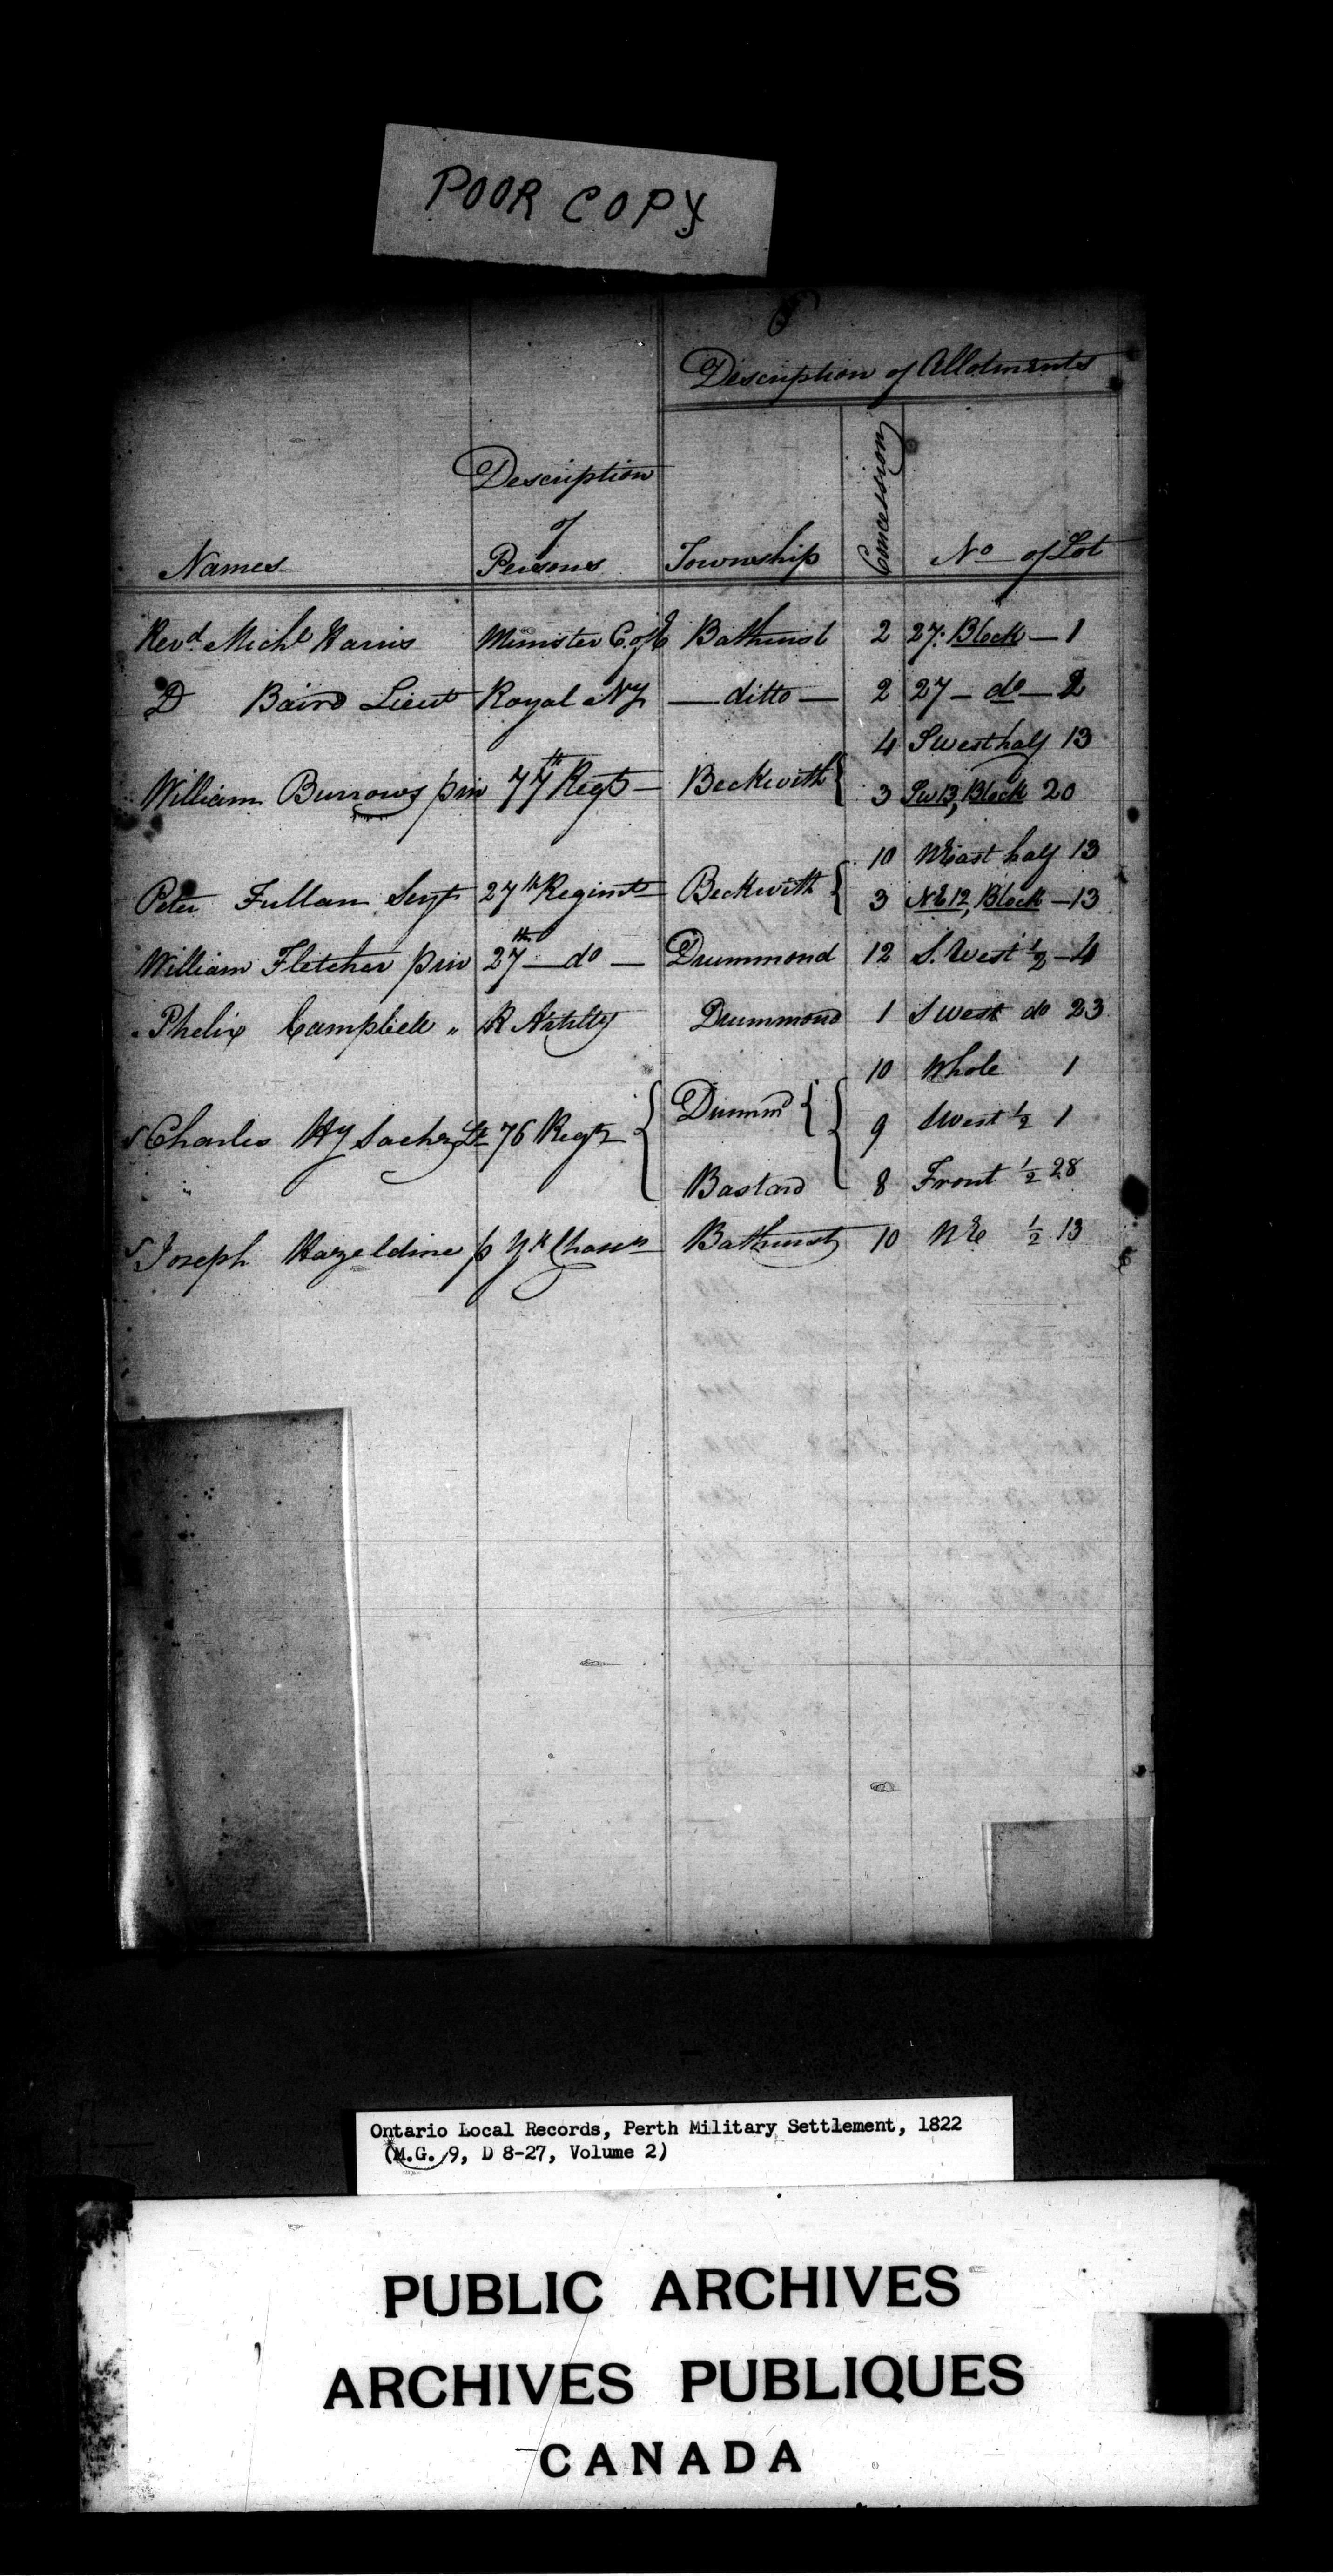 POOR COPY
Description of Allotments
Description
of
Names Persons Township Concession No of Lot
Revd. Michl Harris Minister C. of E Bathurst 2 27. Block — 1
D Baird Lieut Royal Ny — ditto — 2 27 — do — 2
4 S West half 13
William Burrows priv 77th Regt — Beckwith { 3 Sw 13, Block 20
10 N East half 13
Peter Fullam Sergt 27th Regimt Beckwith { 3 NE 12, Block — 13
William Fletcher priv 27th — do — Drummond 12 S. West 1/2 — 4
Phelix Campbell " R Artilly Drummond 1 S West do 23
10 Whole 1
Charles Hy Lt 76 Regt { Drummd { { 9 S West 1/2 1
" Bastard 8 Front 1/2 28
Joseph Hazeldine p Yk Chasrs Bathurst 10 N E 1/2 13
Ontario Local Records, Perth Military Settlement, 1822
(M.G. 9, D 8-27, Volume 2)
PUBLIC ARCHIVES
ARCHIVES PUBLIQUES
CANADA